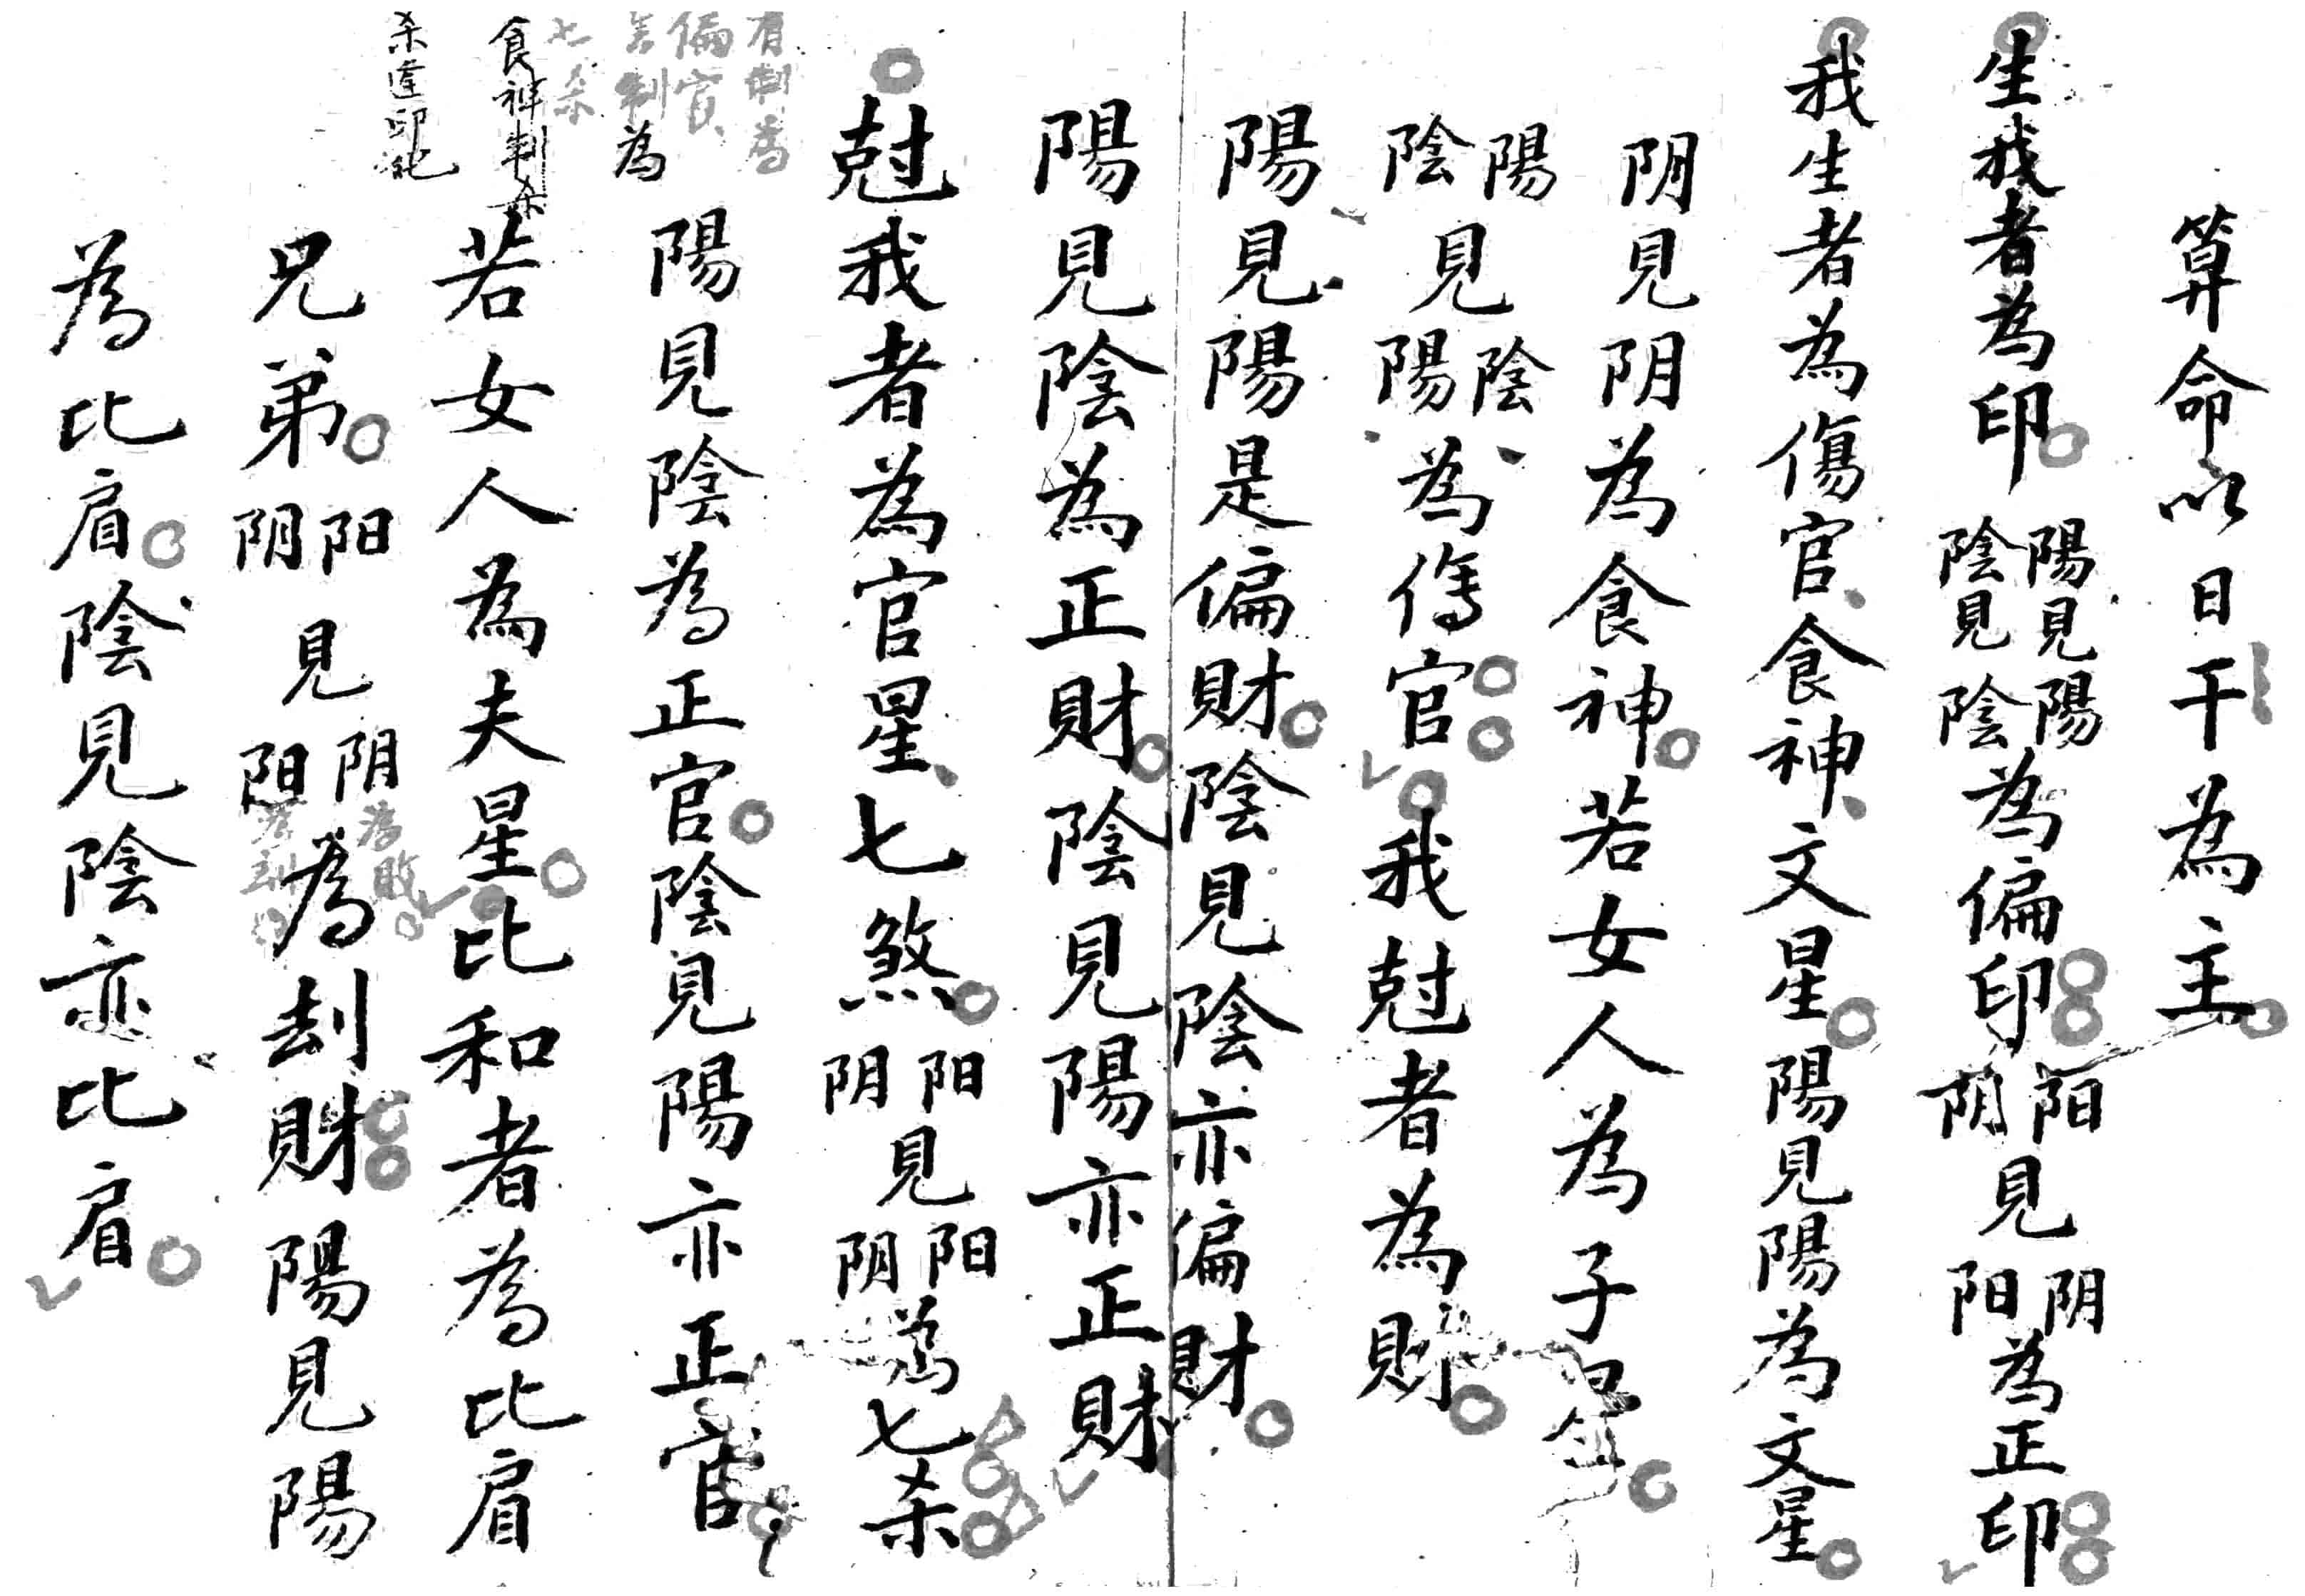 算命以日干為主
生我者為印陽見陽陰見陰為偏印阳見阴阴見阳為正印
我生者為傷官食神文星陽見陽為文星
阴見阴為食神若女人為子
陽見陰陰見陽為傷官我尅者為財
陽見陽是偏財陰見陰亦偏財
陽見陰為正財陰見陽亦正財
尅我者為官星七煞阳見阳阴見阴為七杀
有制為
偏官
制為
七杀
陽見陰為正官陰見陽亦正官
食神制杀
若女人為夫星比和者為比肩
杀逢印
兄弟阳見阴阴見阳為刦財陽見陽
為敗
為刦
為比肩陰見陰亦比肩